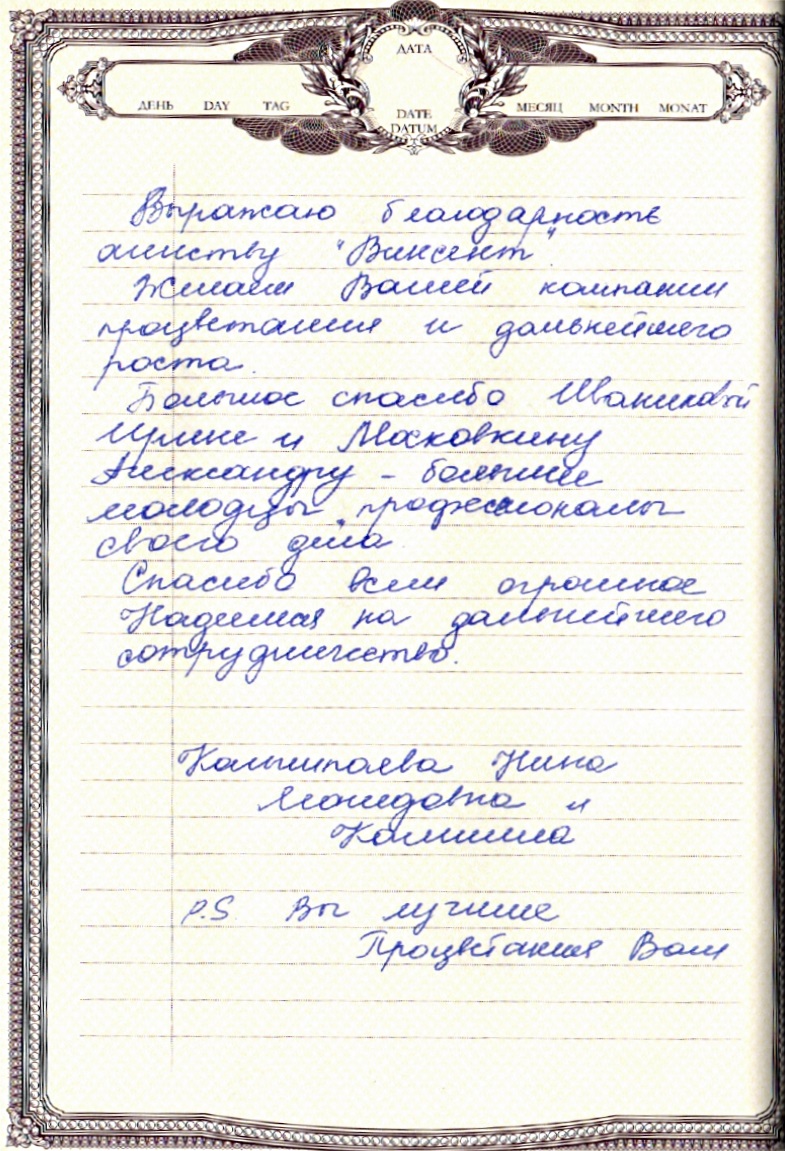 ДАТА
ДЕНЬ DAY TAG
DATE
DATUM
МЕСЯЦ MONTH MONAT
Выражаю благодарность
агенству "Виксент"
Желаем Вашей компании
процветания и дальнейшего
роста.
Большое спасибо Иваниковой
Ирине и Московкину
Александру - большие
молодцы, профессионалы
своего дела.
Спасибо всем огромное
Надеемся на дальнейшего
сотрудничество.
Нина
Леонидовна и
P.S Вы лучшие
Процветания Вам